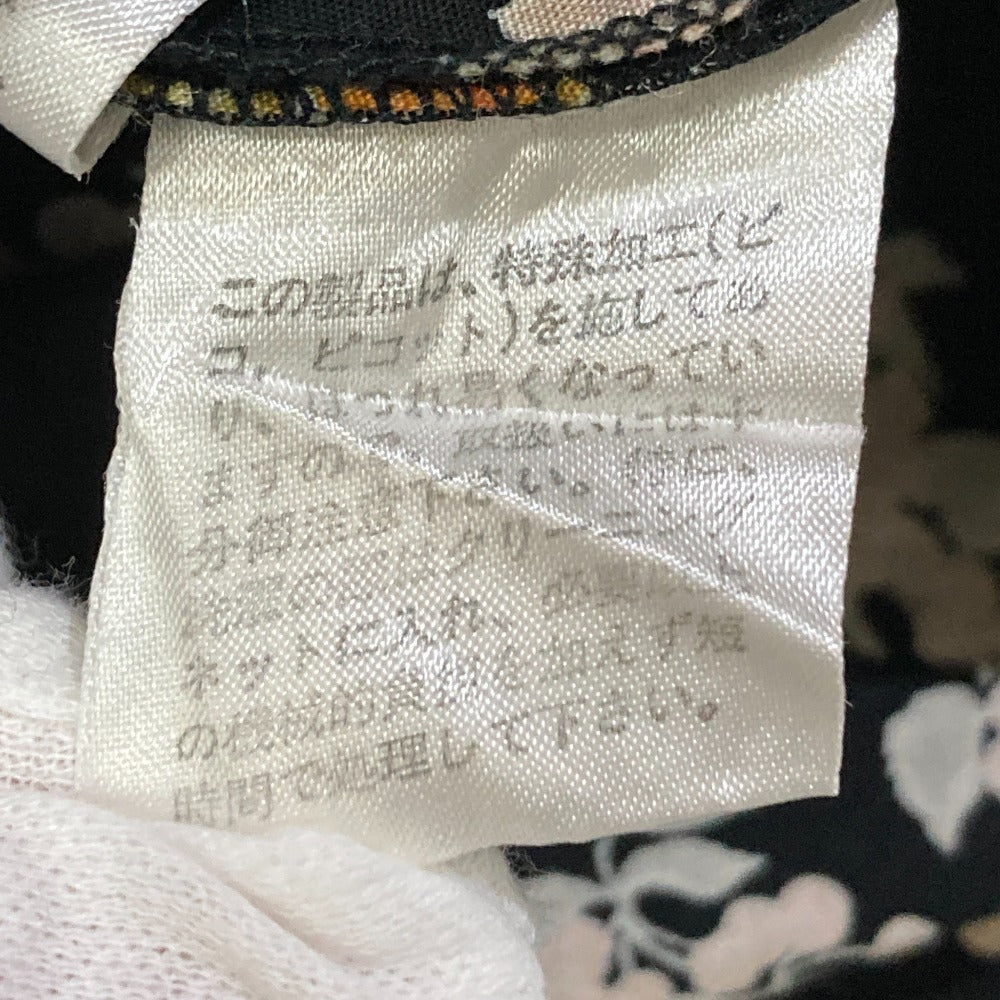 この製品は、特殊加工(ピ
コ、ピコット)を施してあ
り、ほつれ易くなってい
ますので、取扱いには十
分御注意下さい。特に、
クリーニング
ネットに入れ、必要以上
の機械的負担を加えず短
時間で処理して下さい。